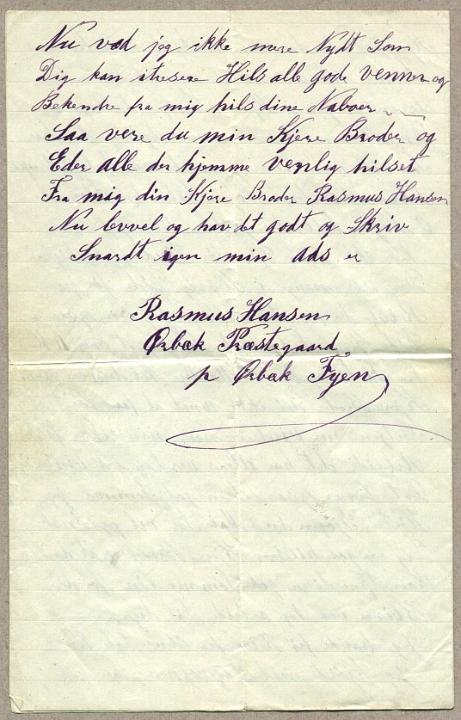 Nu ved jeg ikke mere Nydt Som
Dig kan itresere Hils alle gode venner og
Bekendte fra mig hils dine Naboer
Saa vere du min Kjere Broder og
Eder alle der hjemme venlig hilset
Fra mig din Kjere Broder Rasmus Hansen
Nu levvel og hav det godt og Skriv
Snardt igen min ads er
Rasmus Hansen
Ørbæk Præstegaard
pr Ørbæk Fyen